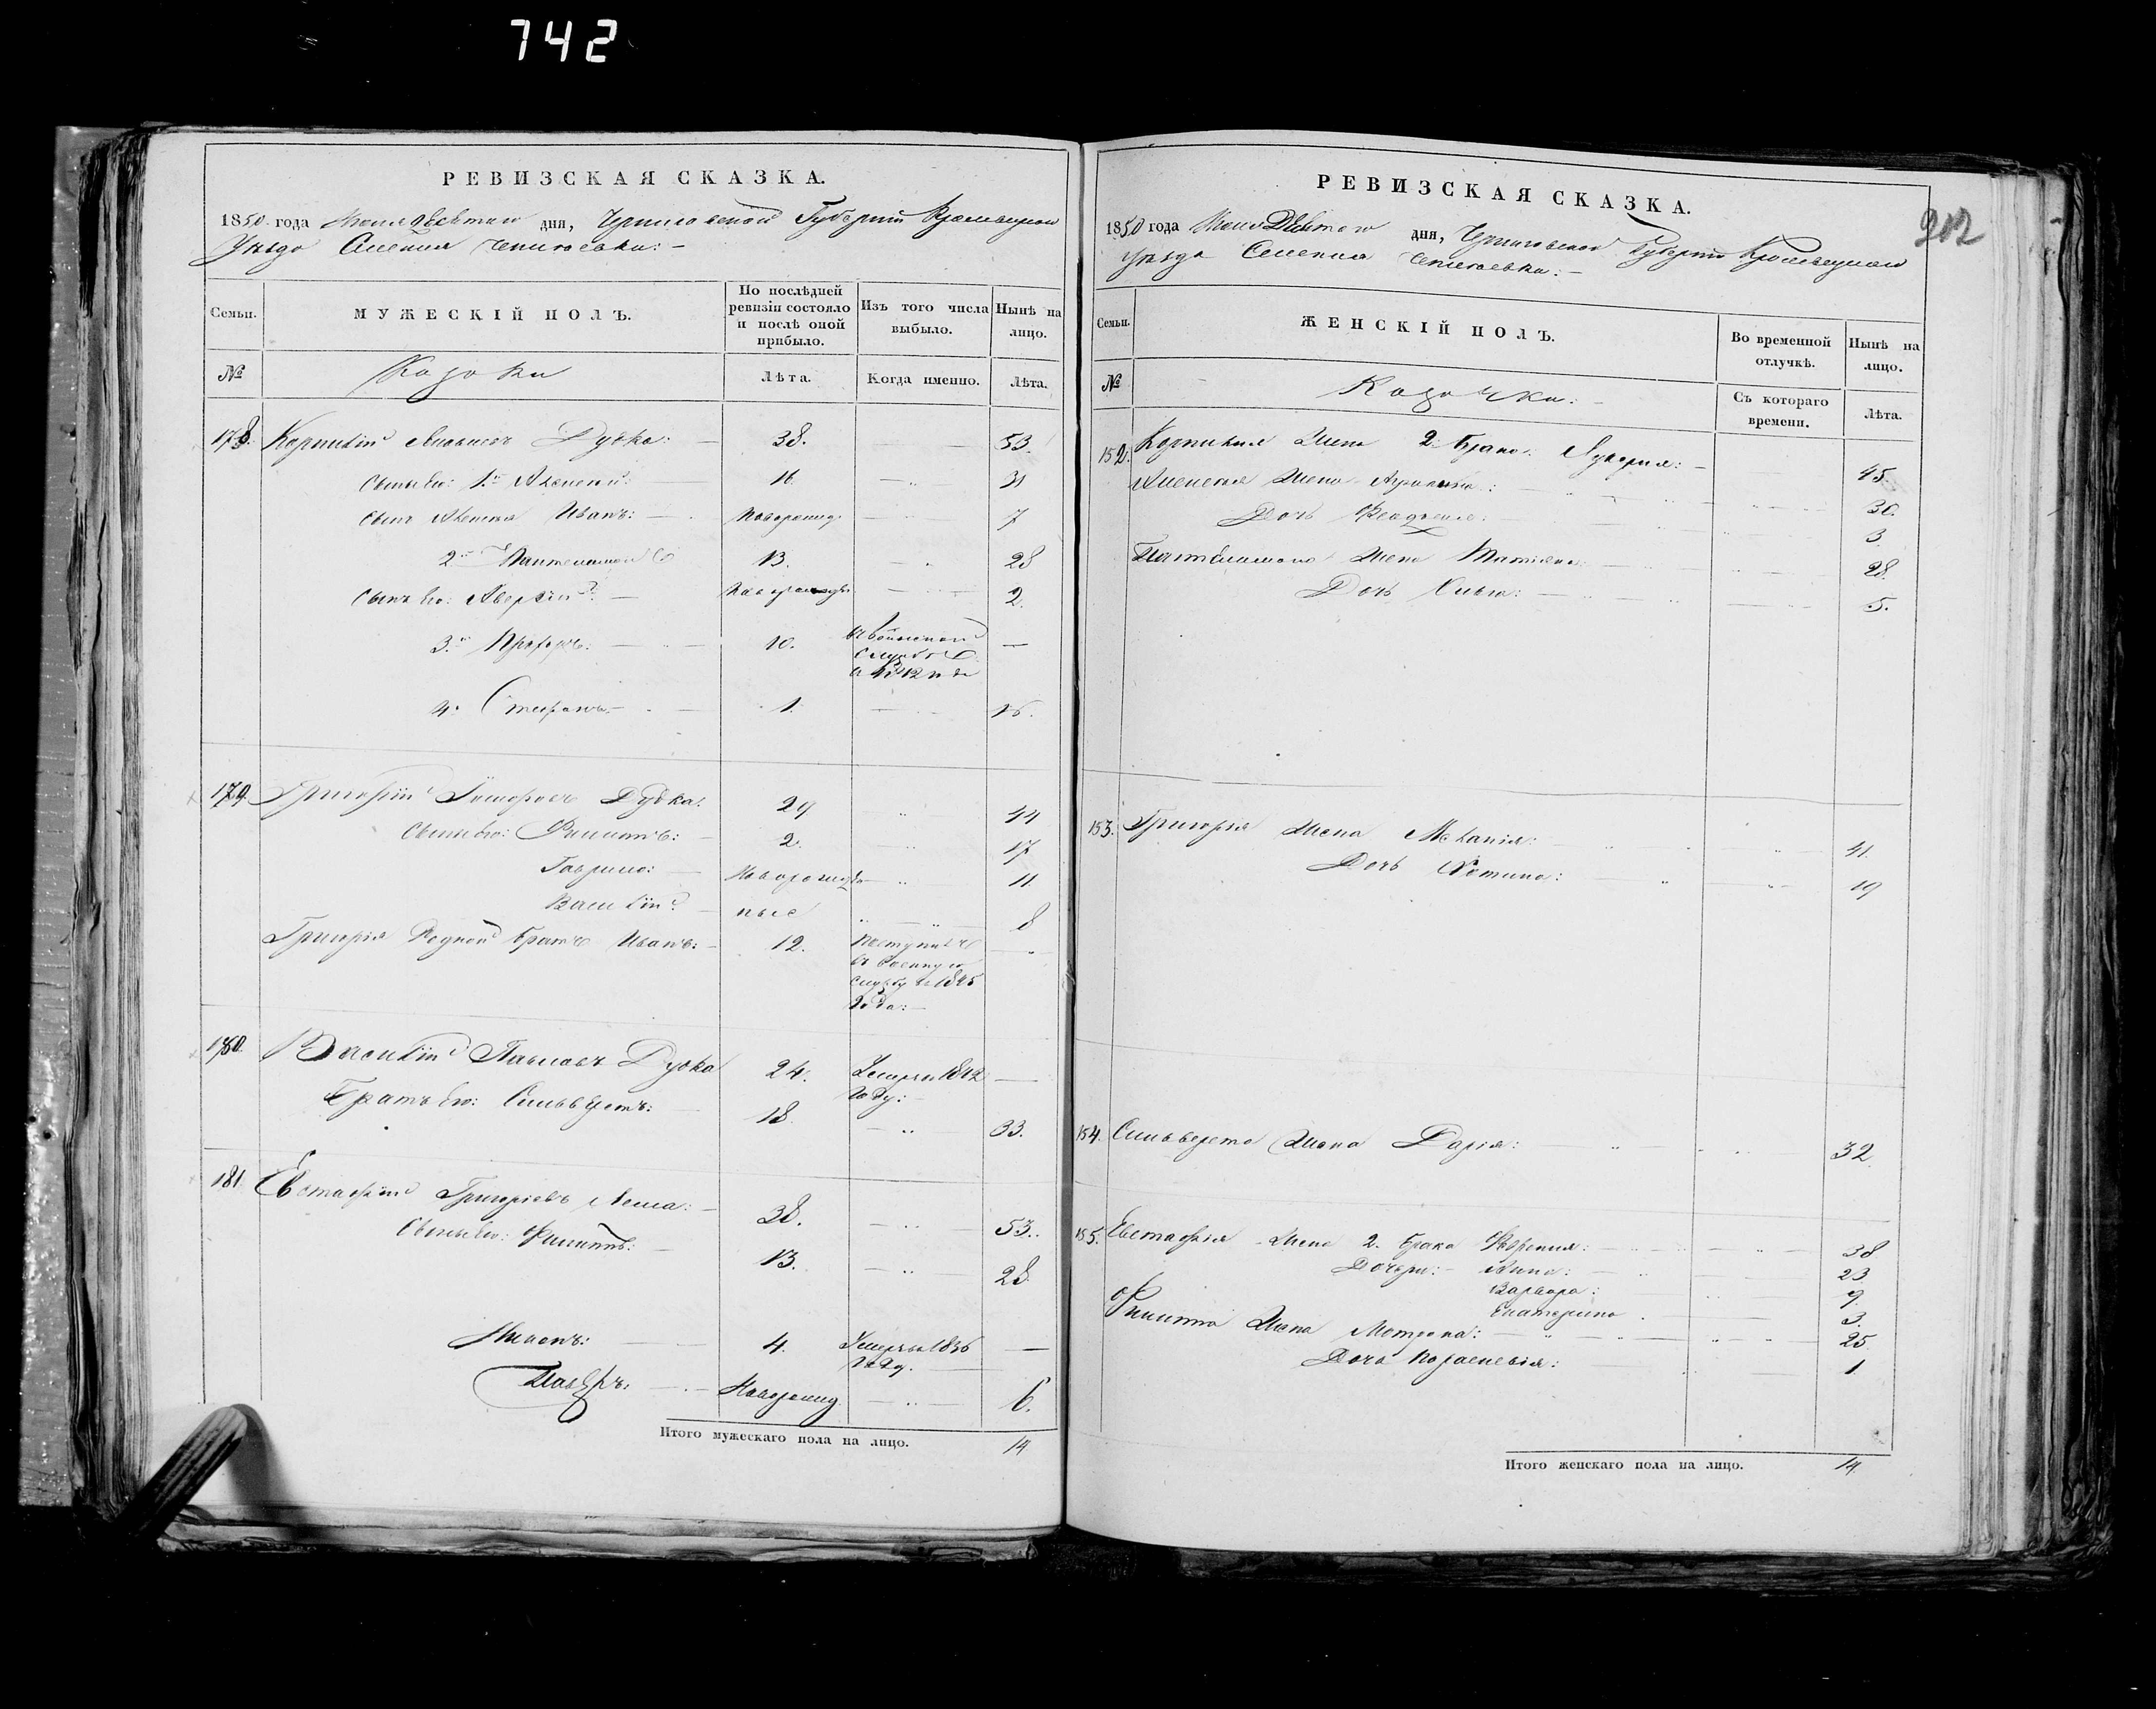 742
РЕВИЗСКАЯ СКАЗКА.
1850 года дня, Черниговской Губерніи Кролевецкаго
Уѣзда Селенія
Семьи. МУЖЕСКІЙ ПОЛЪ. По послѣдней ревизіи состояло и послѣ оной прибыло. Изъ того числа выбыло. Нынѣ на лицо.
№ Козаки Лѣта. Когда именно. Лѣта.
178. Корнилій Дубка: 38. 53.
Сыновья его: 1.й Алексей: 16 31
Сынъ Алексея Иванъ: Новорожд. 7
2.й Пантелимон 13. 28
Сынъ его: Аверкій Новорожды 2.
3.й Прохоръ: 10. въ воинской службѣ с
4. Стефанъ 1. 16.
179. Григорій Дубка: 29 44
Сыновья его: Филипъ: 2. 17
Гаврило: Новорожде 11
Василій ные 8
Григорія Родной братъ Иванъ: 12. Поступилъ
въ военную
службу въ 1845
года:
180. Василій Павловъ Дубка 24. Умеръ въ 1842
году:
Братъ его: Сильвестъ: 18. 33.
181. Евстафій Григоріевъ 38. 53.
Сыновья его: Филиппъ: 13. 28.
4. Умеръ въ 1836
году.
Новорожд 6.
Итого мужескаго пола на лицо. 14
РЕВИЗСКАЯ СКАЗКА.
212
1850 года дня, Черниговской Губерніи Кролевецкаго
Уѣзда Селенія
Семьи. ЖЕНСКІЙ ПОЛЪ. Во временной отлучкѣ. Нынѣ на лицо.
№ Козачки: Съ котораго времени. Лѣта.
152. Корнилія Жена 2. брака: Лукерія: 45.
Алексея Жена 30.
Дочь 3.
Пантелимона Жена Татіяна: 28.
Дочь 5.
153. Григорія Жена Меланія: 41.
Дочь 19
154. Сильверста Жена Дарія: 32
155. Евстафія Жена 2. брака 38
Дочери: 23
Варвара: 9.
Екатерина 3.
Филиппа Жена Мотрона: 25
Дочь Параскевія: 1
Итого женскаго пола на лицо. 14.